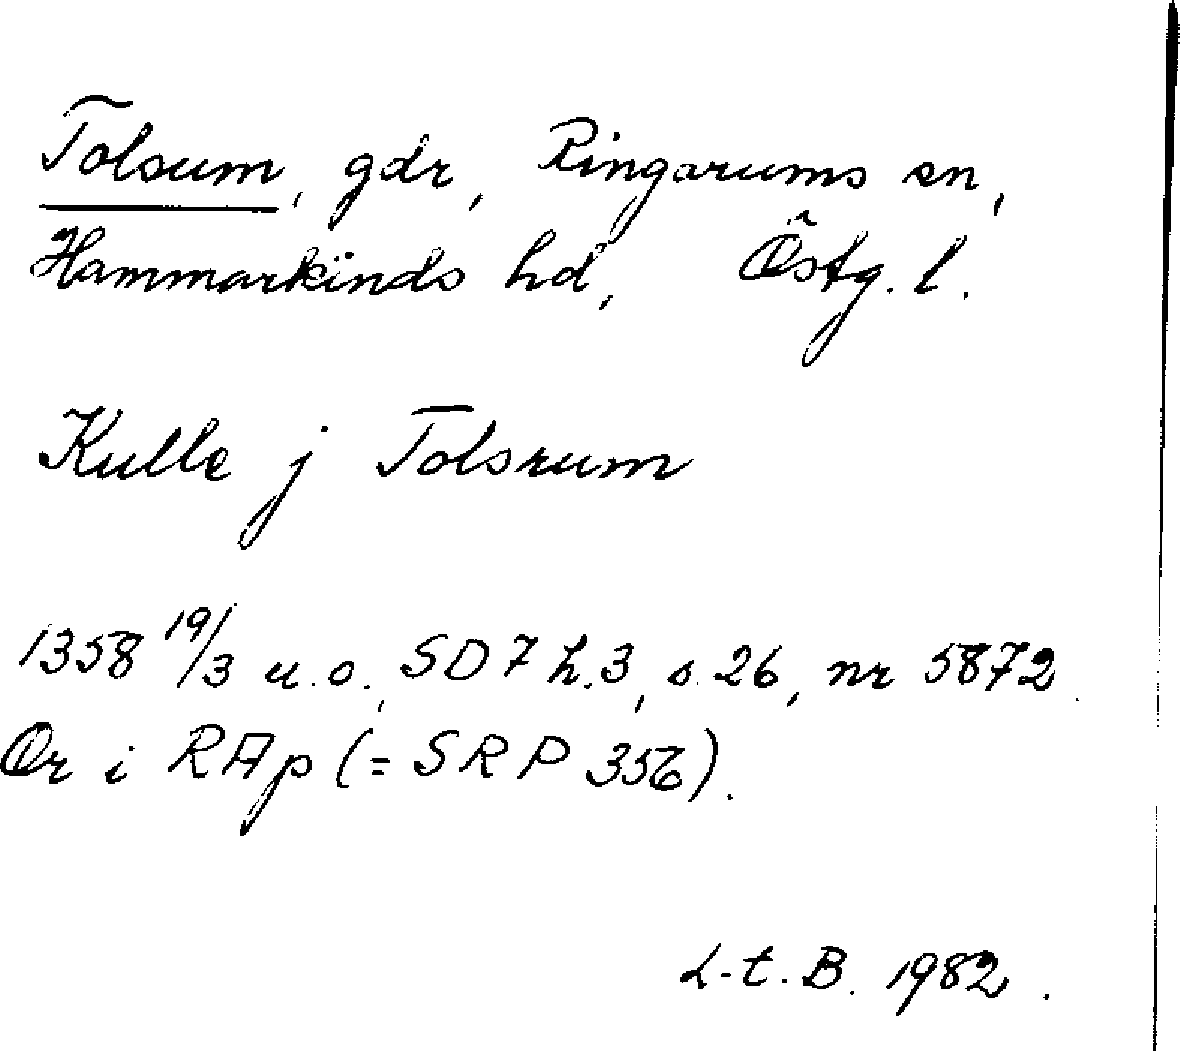 Tolsum, gdr, Ringarums sn,
Hammarkinds hd, Östg. l.
Kulle j Tolsrum
1358 19/3 u.o., SD 7 h.3, s. 26, nr 5872.
Or i RAp (= SRP 356).
L-t. B. 1982.